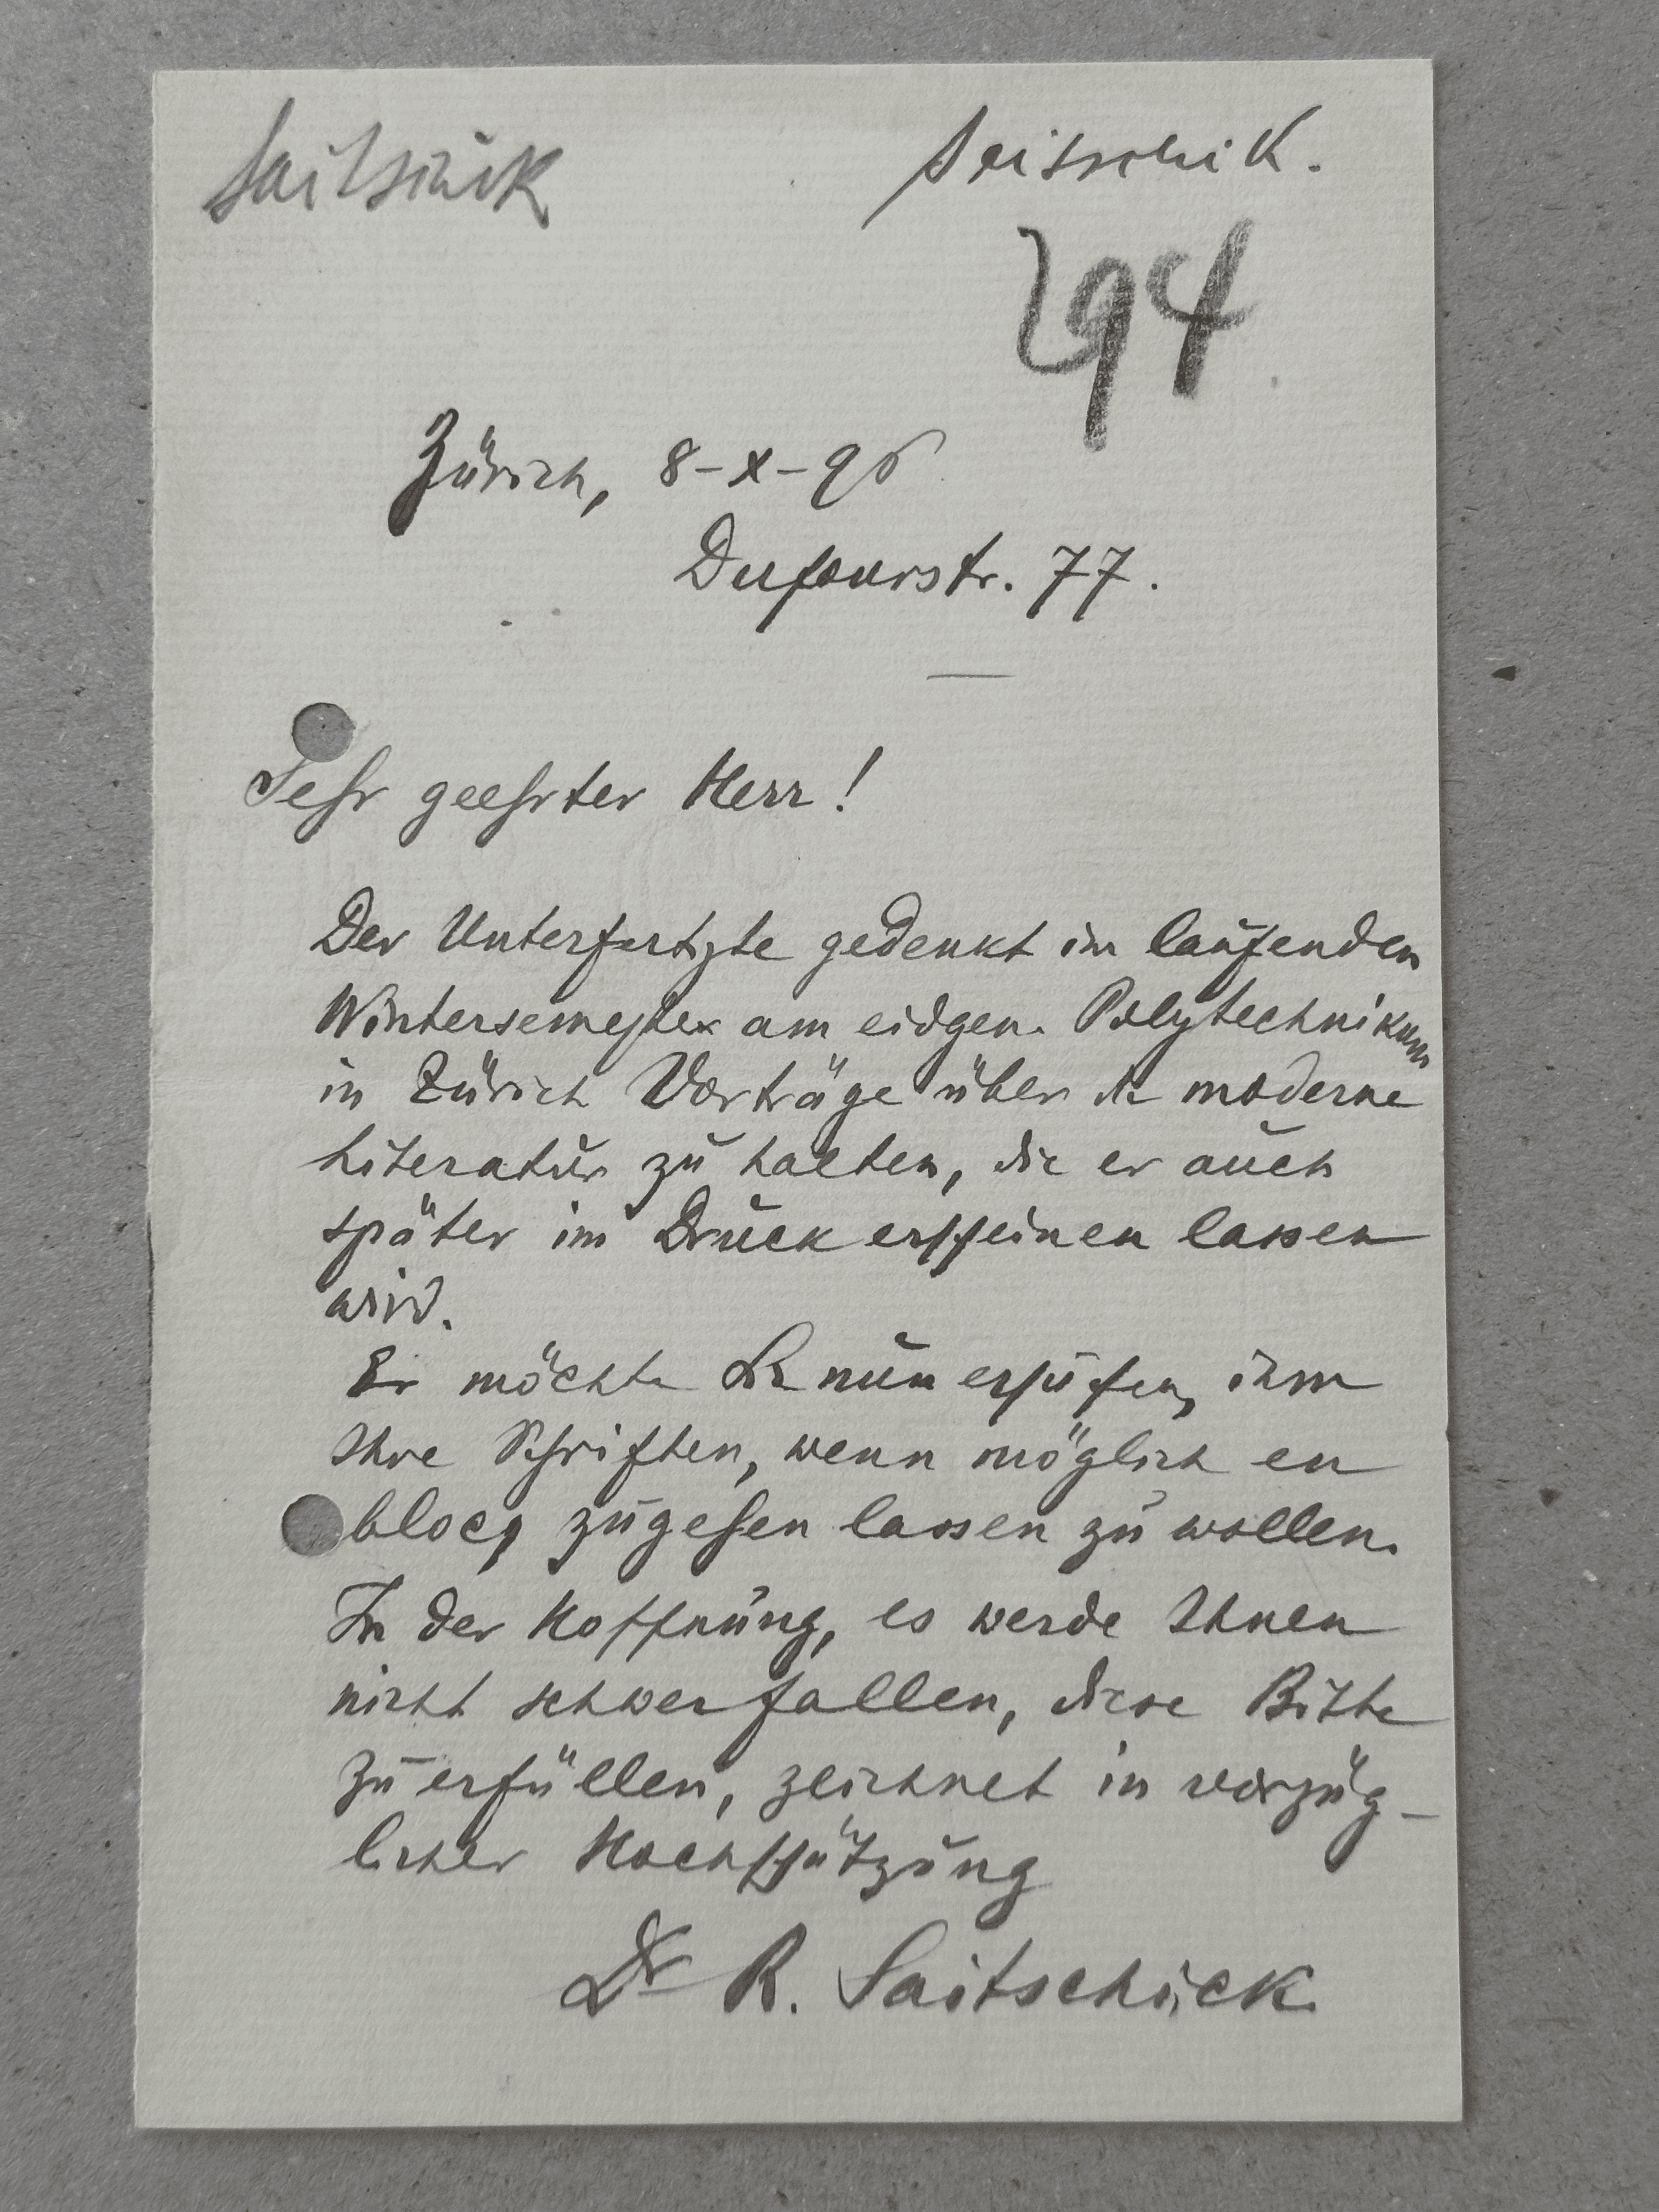 Saitschick
Saitschik.
294
Zürich, 8-X-96
Dufourstr. 77.
Sehr geehrter Herr!
Der Unterfertigte gedenkt im laufenden
Wintersemester am eidgen. Polytechnikum
in Zürich Vorträge über die moderne
Literatur zu halten, die er auch
später im Druck erscheinen lassen
wird.
Er möchte Sie nun ersuchen, ihm
Ihre Schriften, wenn möglich en
blocq zugehen lassen zu wollen.
In der Hoffnung, es werde Ihnen
nicht schwer fallen, diese Bitte
zu erfüllen, zeichnet in vorzüg-
licher Hochschätzung
Dr R. Saitschick.